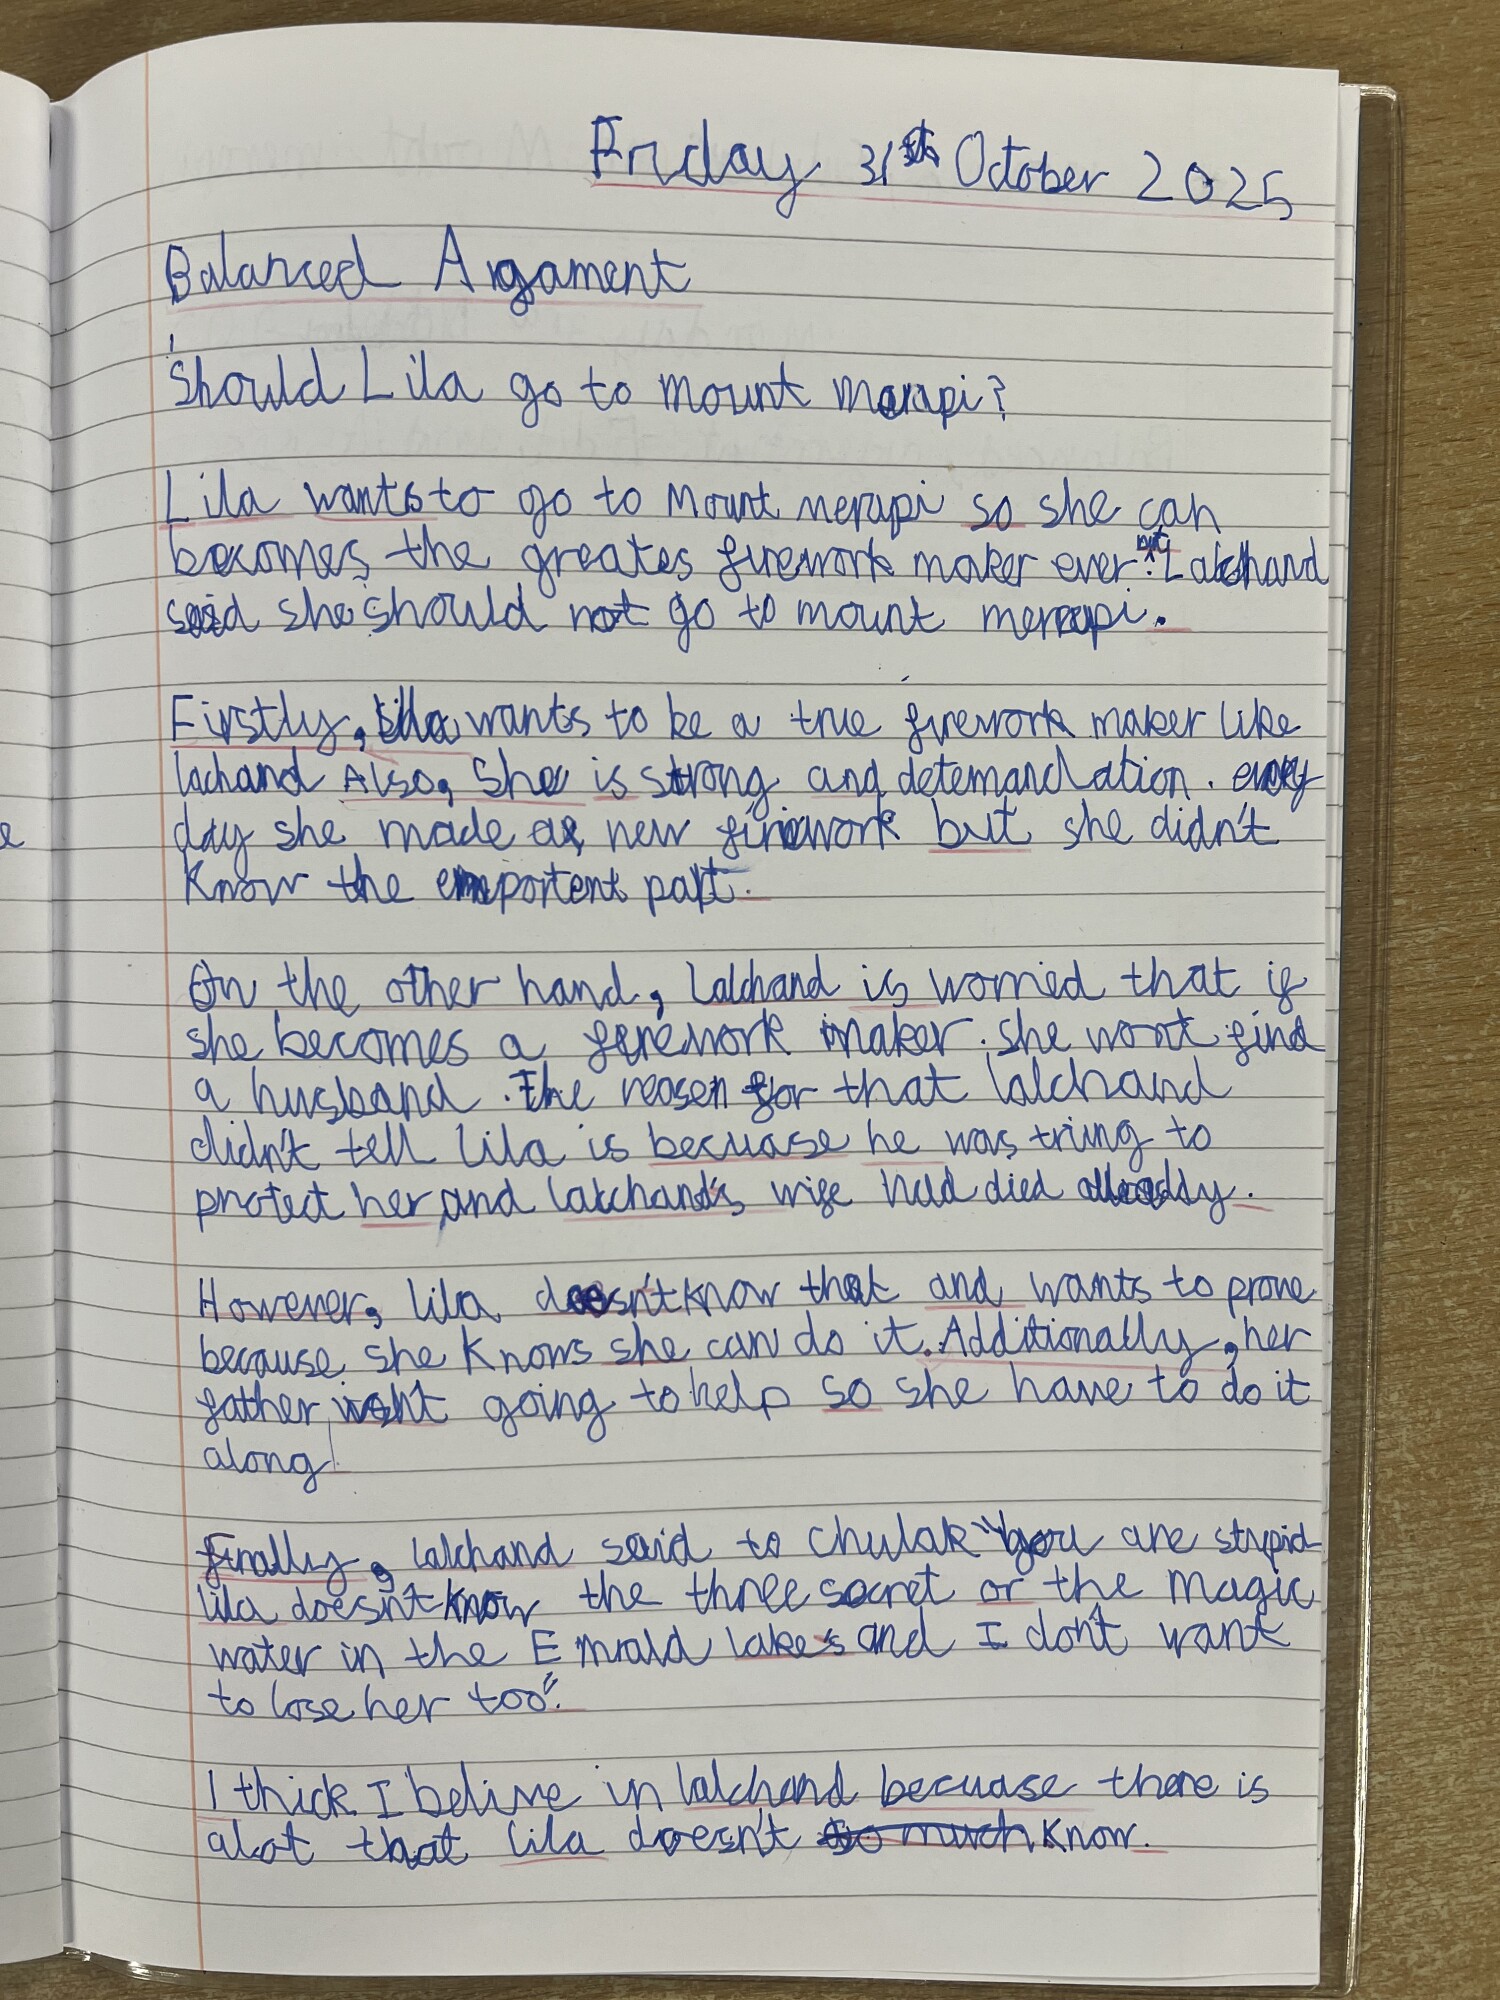 Friday 31st October 2025
Balanced Argament
Should Lila go to mount Merapi?
Lila wants to go to Mount merapi so she can
becomes the greates firework maker ever but Lalchand
said she should not go to mount merapi.
Firstly, Lila wants to be a true firework maker like
lachand Also, She is strong and detemandation. every
day she made a new firework but she didn't
Know the emportent part.
On the other hand, Lalchand is worried that if
she becomes a firework maker. she wont find
a husband. The reasen for that lalchand
didn't tell Lila is becuase he was triing to
protect her, and lalchand's wife had died alleady.
However, lila doesn't know that and wants to prove
because she Knows she can do it. Additionally, her
father isn't going to help so she have to do it
along.
Finally, lalchand said to Chulak "you are stupid
lila doesn't know the three secret or the Magic
water in the Emrald lake's and I don't want
to lose her too".
I thick I belive in lalchand becuase there is
alot that lila doesn't so much Know.